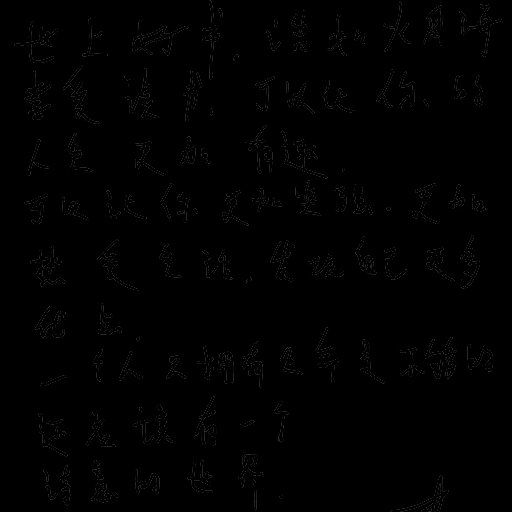 世上好书，浩如烟海
喜爱读书，可以让你的
人生更加有趣.
可以让你更加坚强.更加
热爱生活,发现自己更多
优点.
一个人只拥有是不够的
还应该有一个
诗意的世界.